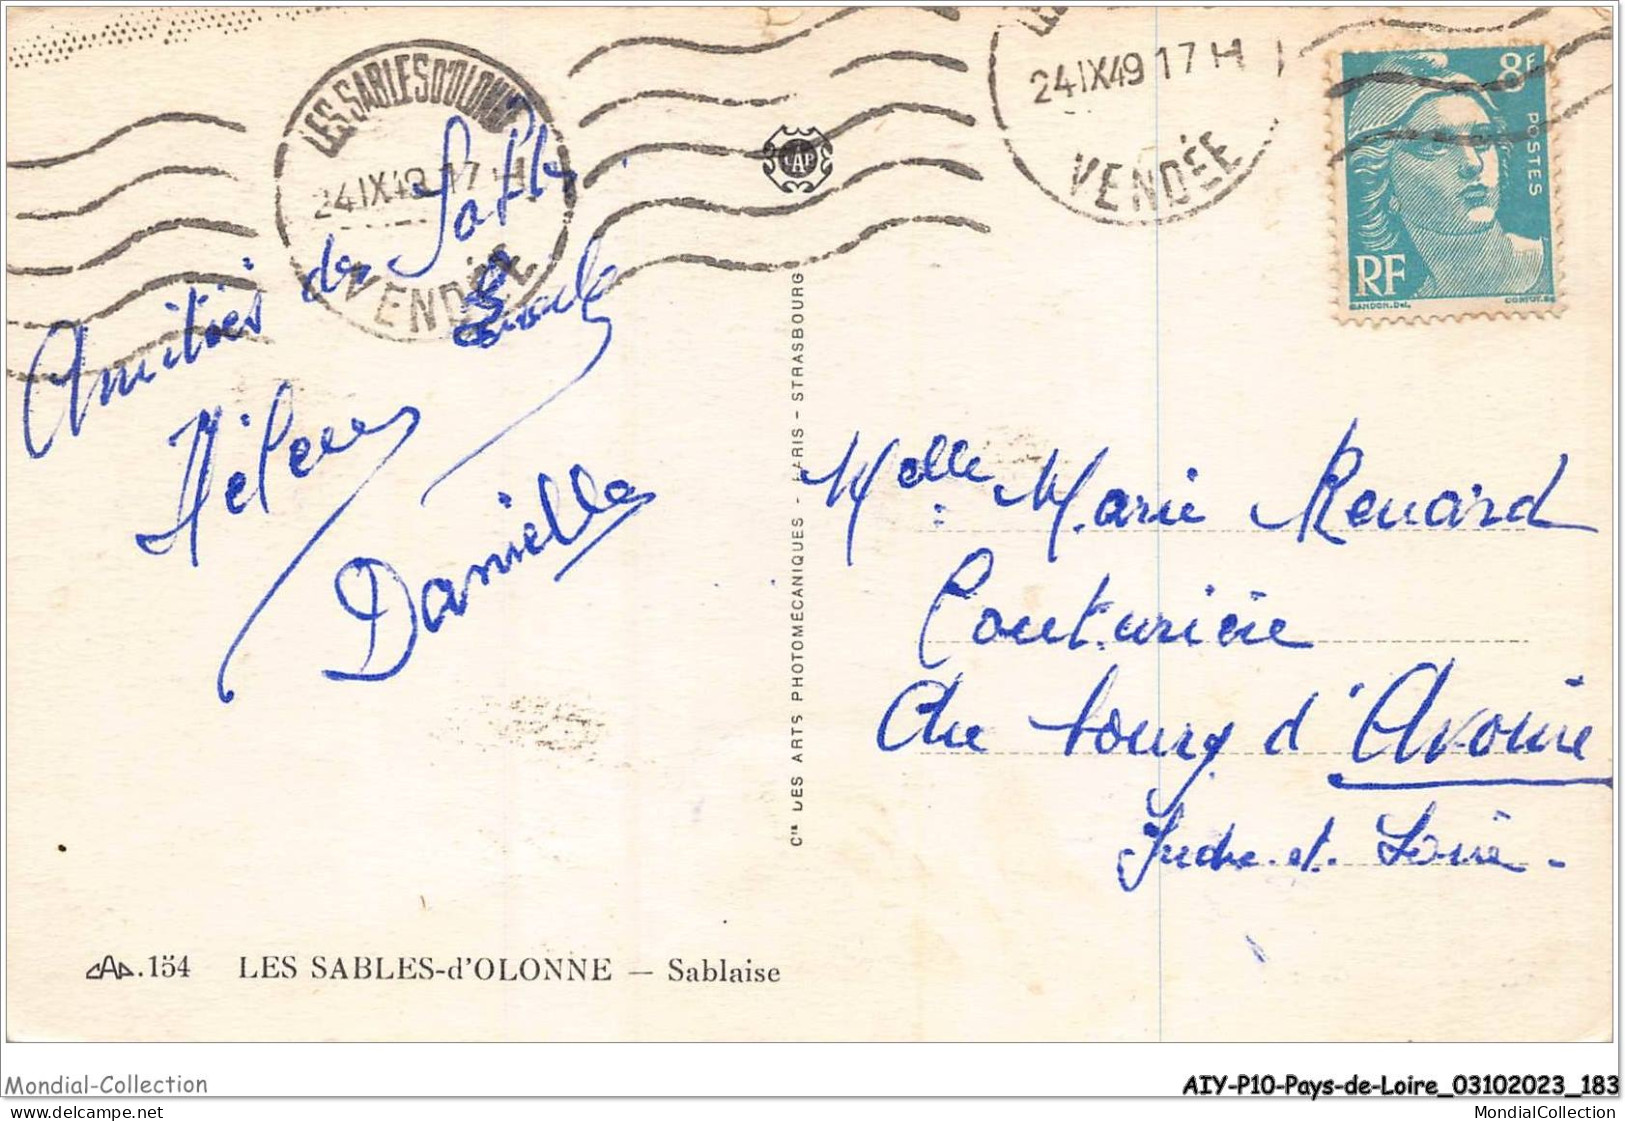 LES SABLES D'OLONNE
24 IX 49 17 H
VENDÉE
24 IX 49 17 H
VENDÉE
8F
POSTES
RF
GANDON.Del.
CAP
Amitiés des Sables
Hélène
Danielle
Melle Marie Renard
Couturière
Au bourg d'Avoine
Indre-et-Loire-
Cie DES ARTS PHOTOMÉCANIQUES - PARIS - STRASBOURG
CAP.154 LES SABLES-d'OLONNE — Sablaise
Mondial-Collection
AIY-P10-Pays-de-Loire_03102023_183
www.delcampe.net
MondialCollection